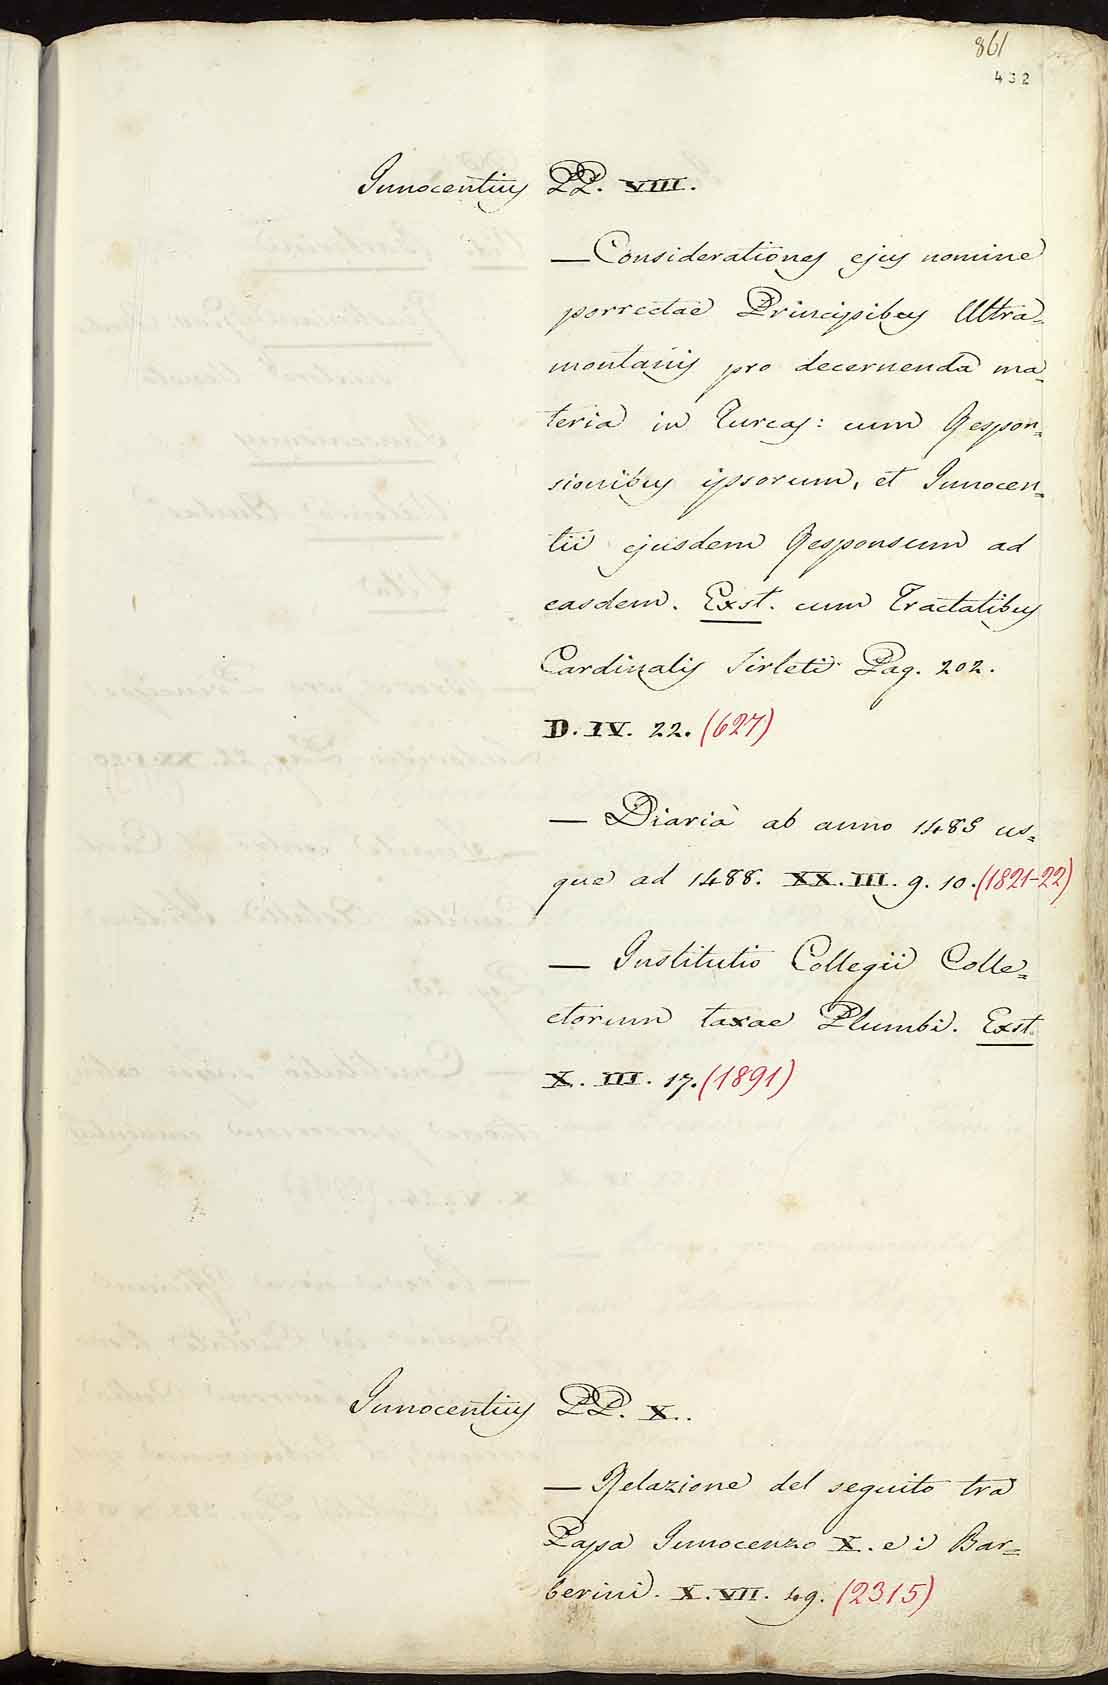 861
432
Innocentius PP. VIII.
— Considerationes ejus nomine
porrectae Principibus Ultra=
montanis pro decernenda ma=
teria in Turcas: cum Respon=
sionibus ipsorum, et Innocen=
tii ejusdem Responsum ad
easdem. Exst. cum Tractatibus
Cardinalis Sirleti Pag. 202.
D. IV. 22. (627)
— Diaria ab anno 1485 us=
que ad 1488. XX. III. 9. 10. (1821-22)
— Institutio Collegii Colle=
ctorum taxae Plumbi. Exst.
X. III. 17. (1891)
Innocentius PP. X.
— Relazione del seguito tra
Papa Innocenzo X. e i Bar=
berini. X. VII. 49. (2315)